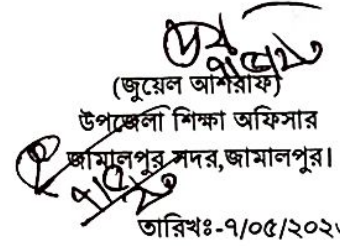 (জুয়েল আশরাফ)
উপজেলা শিক্ষা অফিসার
জামালপুর সদর,জামালপুর।
তারিখঃ-৭/০৫/২০২